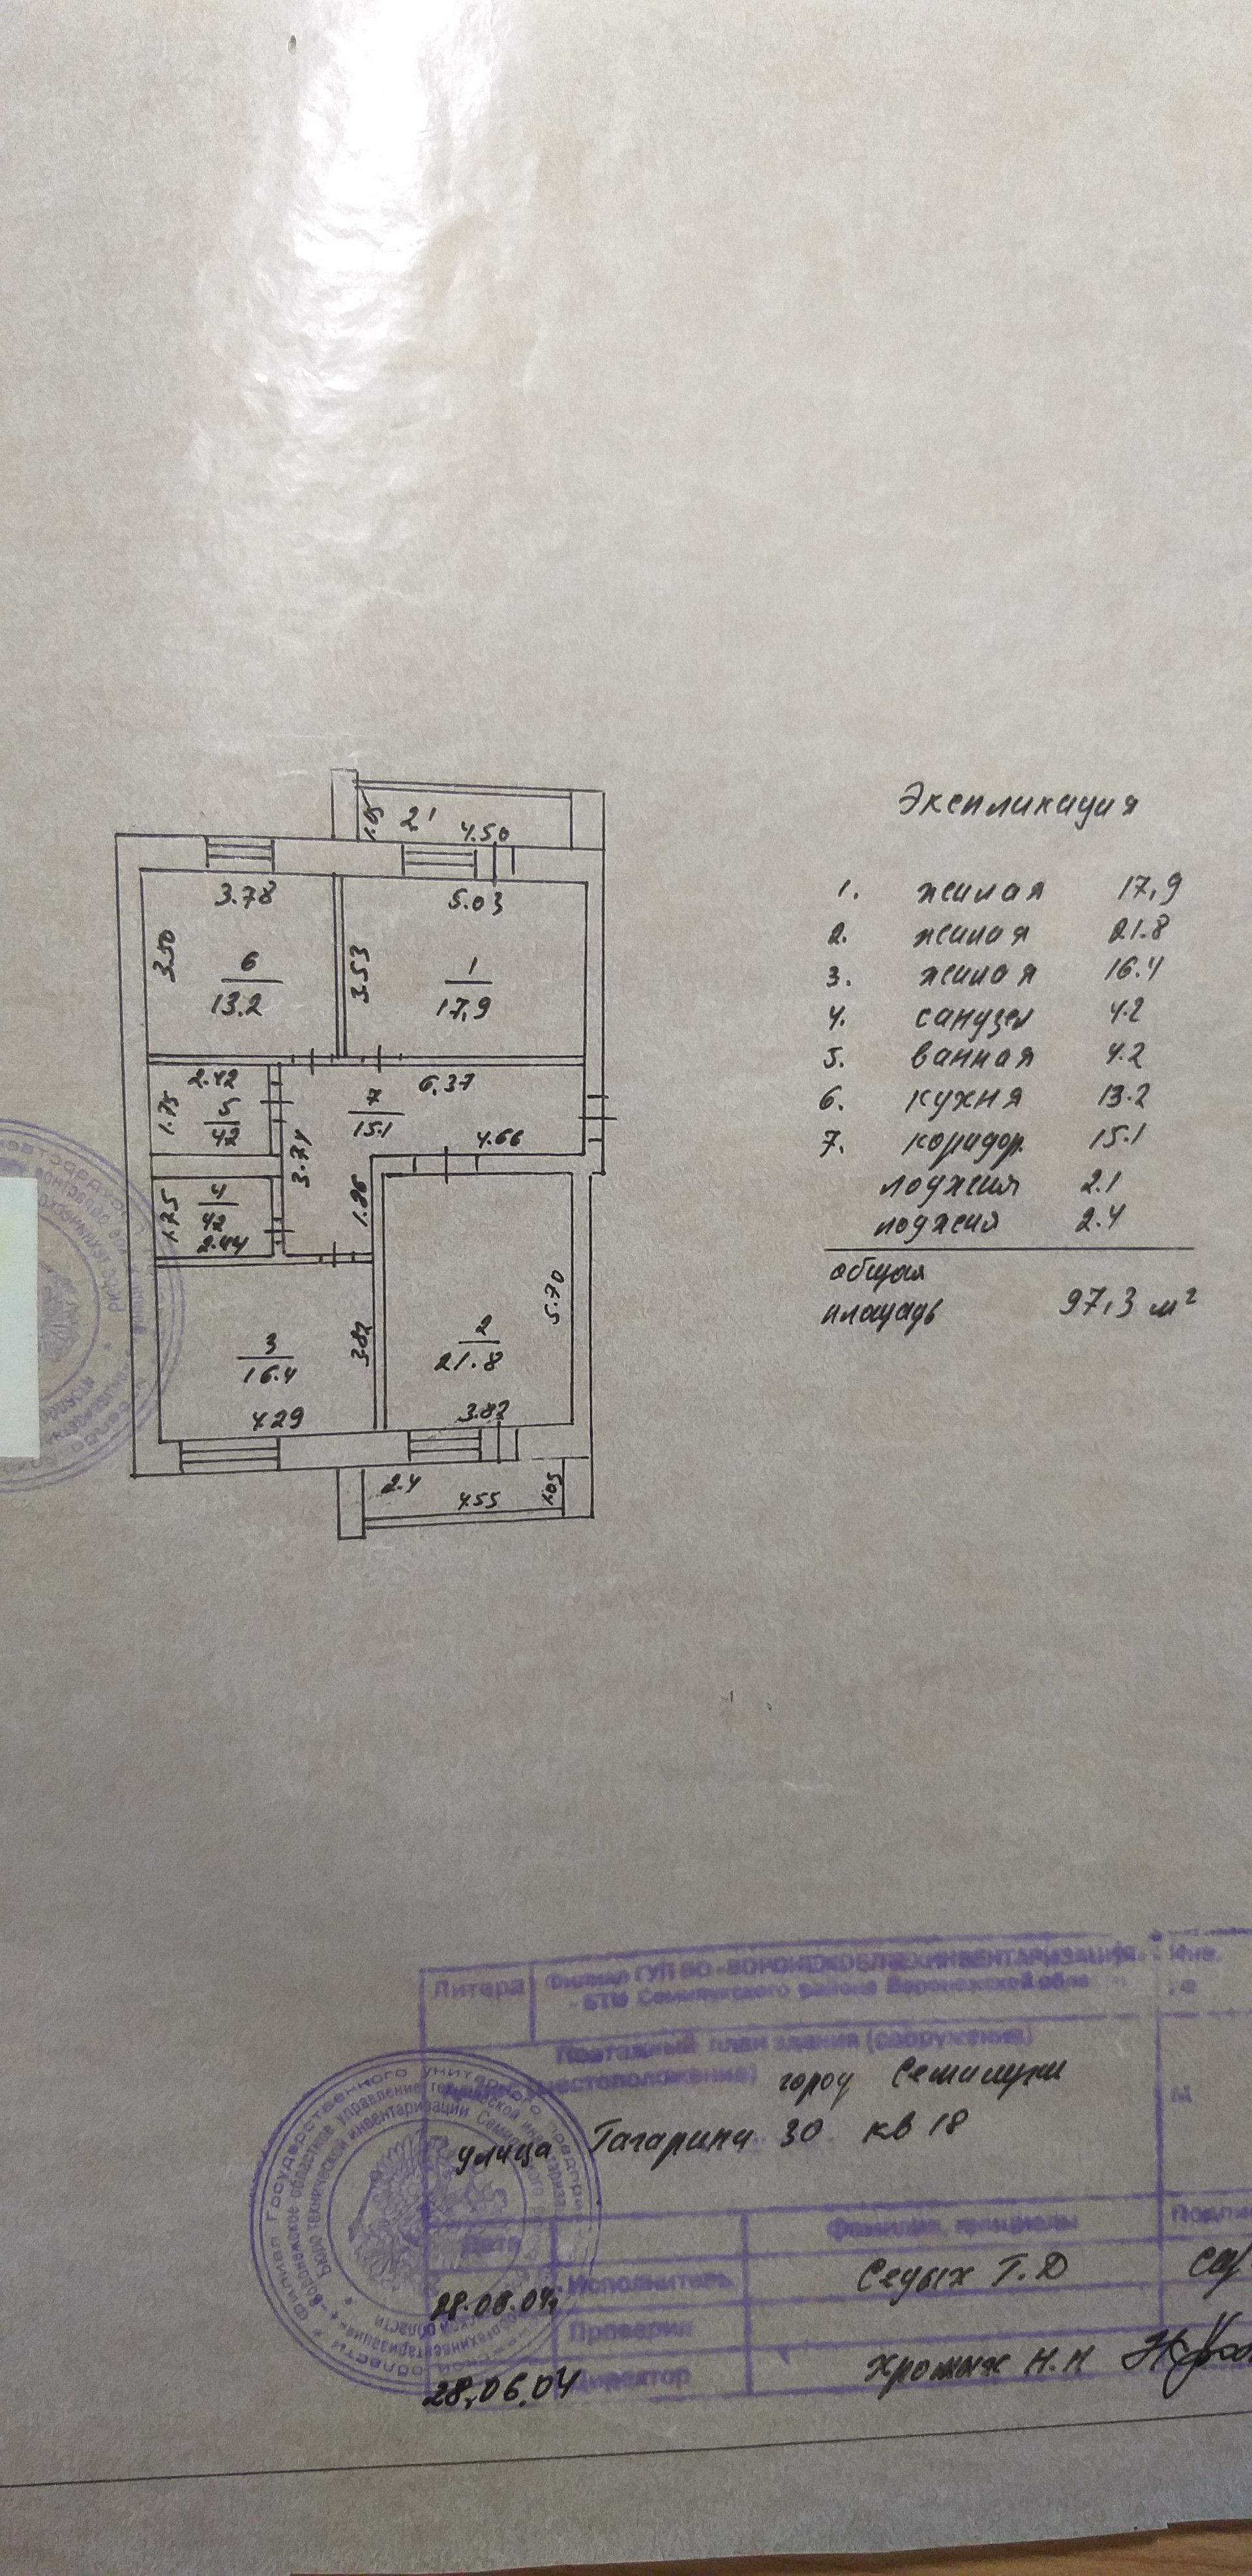 2'
1.05
4.50
3.78
5.03
3.50
6
13.2
3.53
1
17,9
2.42
6.37
1.75
5
4.2
7
15.1
3.71
4.66
1.75
4
4.2
2.44
1.86
5.70
3
16.4
3.82
2
21.8
4.29
3.82
2.4
4.55
1.05
Экспликация
1. жилая 17,9
2. жилая 21.8
3. жилая 16.4
4. санузел 4.2
5. ванная 4.2
6. кухня 13.2
7. коридор 15.1
лоджия 2.1
лоджия 2.4
общая
площадь 97,3 м²
Литера
Филиал ГУП ВО «ВОРОНЕЖОБЛТЕХИНВЕНТАРИЗАЦИЯ»
БТИ Семилукского района Воронежской обл
Инв.
Поэтажный план здания (сооружения)
местоположение) город Семилуки
М
улица Гагарина 30 кв 18
Дата
Фамилия, инициалы
28.06.04
Исполнитель
Седых Т.Д
Проверил
28.06.04
Директор
Н.Н